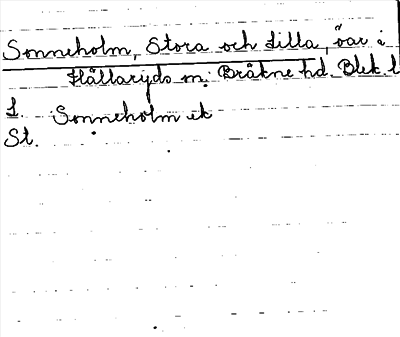 Sonneholm, Stora och Lilla, öar i
Hällaryds sn. Bräkne hd. Blek. l
L. Sonneholm ek
St.